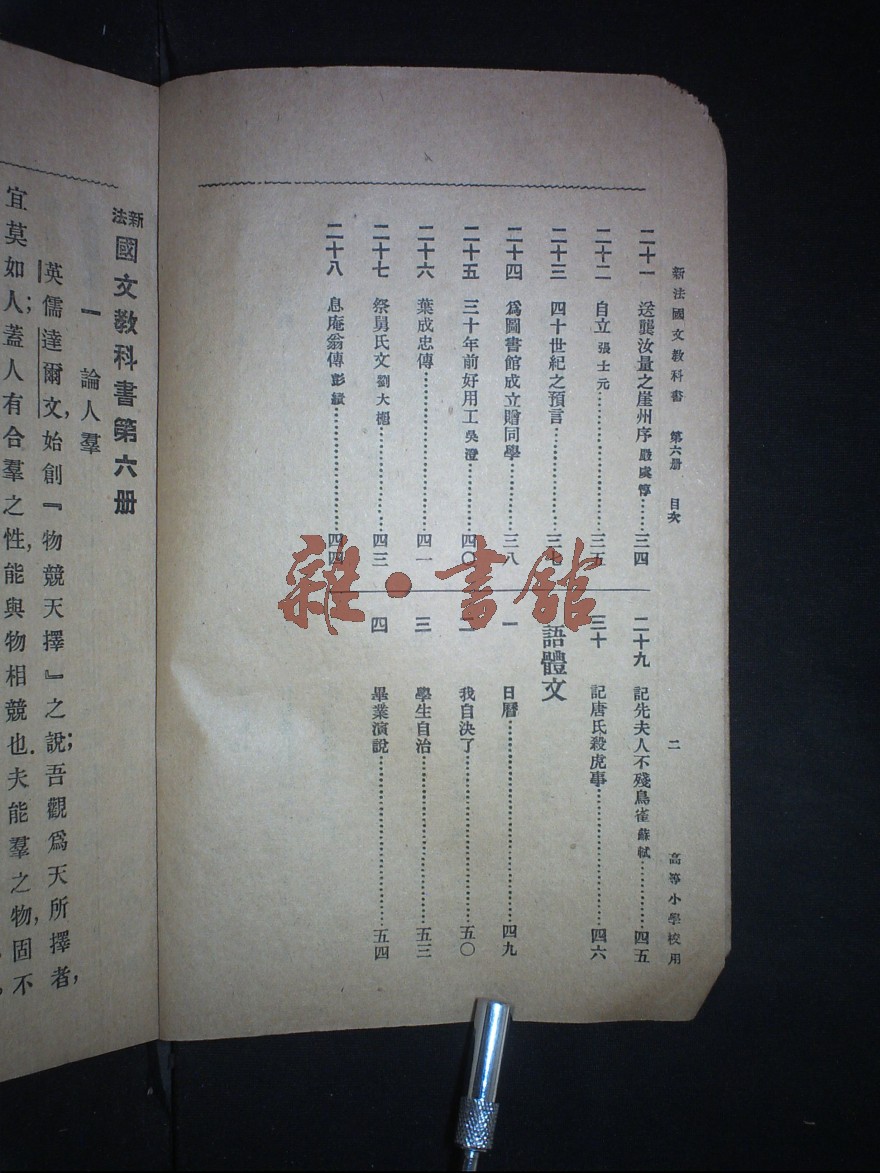 新法國文教科書 第六册 目次 二 高等小學校用
二十一 送龔汝量之崖州序 嚴虞惇……三四
二十二 自立 張士元……三五
二十三 四十世紀之預言……三七
二十四 爲圖書館成立贈同學……三八
二十五 三十年前好用工 吳澄……四〇
二十六 葉成忠傳……四一
二十七 祭舅氏文 劉大櫆……四三
二十八 息庵翁傳 彭績……四四
二十九 記先夫人不殘鳥雀 蘇軾……四五
三十 記唐氏殺虎事……四六
語體文
一 日曆……四九
二 我自決了……五〇
三 學生自治……五三
四 畢業演說……五四
新法國文教科書第六册
一 論人羣
英儒達爾文，始創『物競天擇』之說；吾觀爲天所擇者，
宜莫如人；蓋人有合羣之性，能與物相競也．夫能羣之物，固不
雜·書館